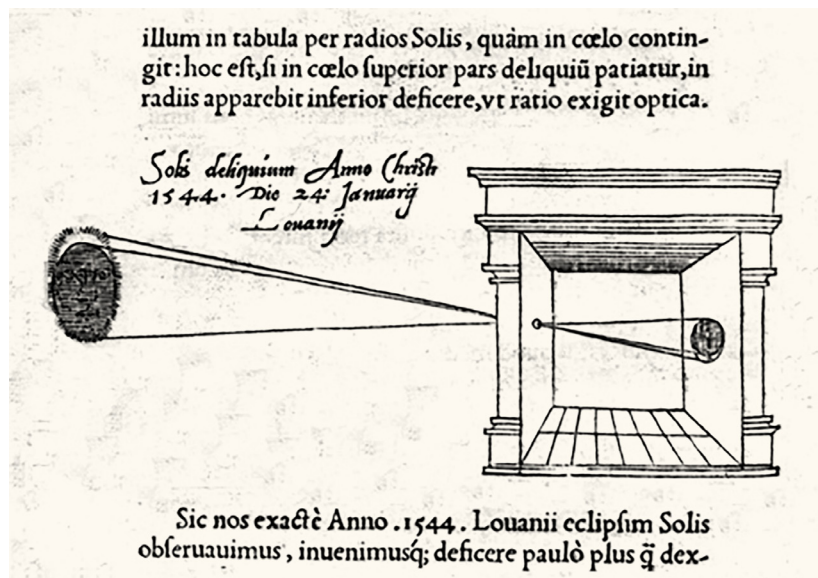 illum in tabula per radios Solis, quàm in cœlo contin-
git: hoc eſt, ſi in cœlo ſuperior pars deliquiũ patiatur, in
radiis apparebit inferior deficere, vt ratio exigit optica.
Solis deliquium Anno Christi
1544. Die 24: Januarij
Louanij
Sic nos exactè Anno .1544. Louanii eclipſim Solis
obſeruauimus, inuenimusq́; deficere paulò plus q̃ dex-